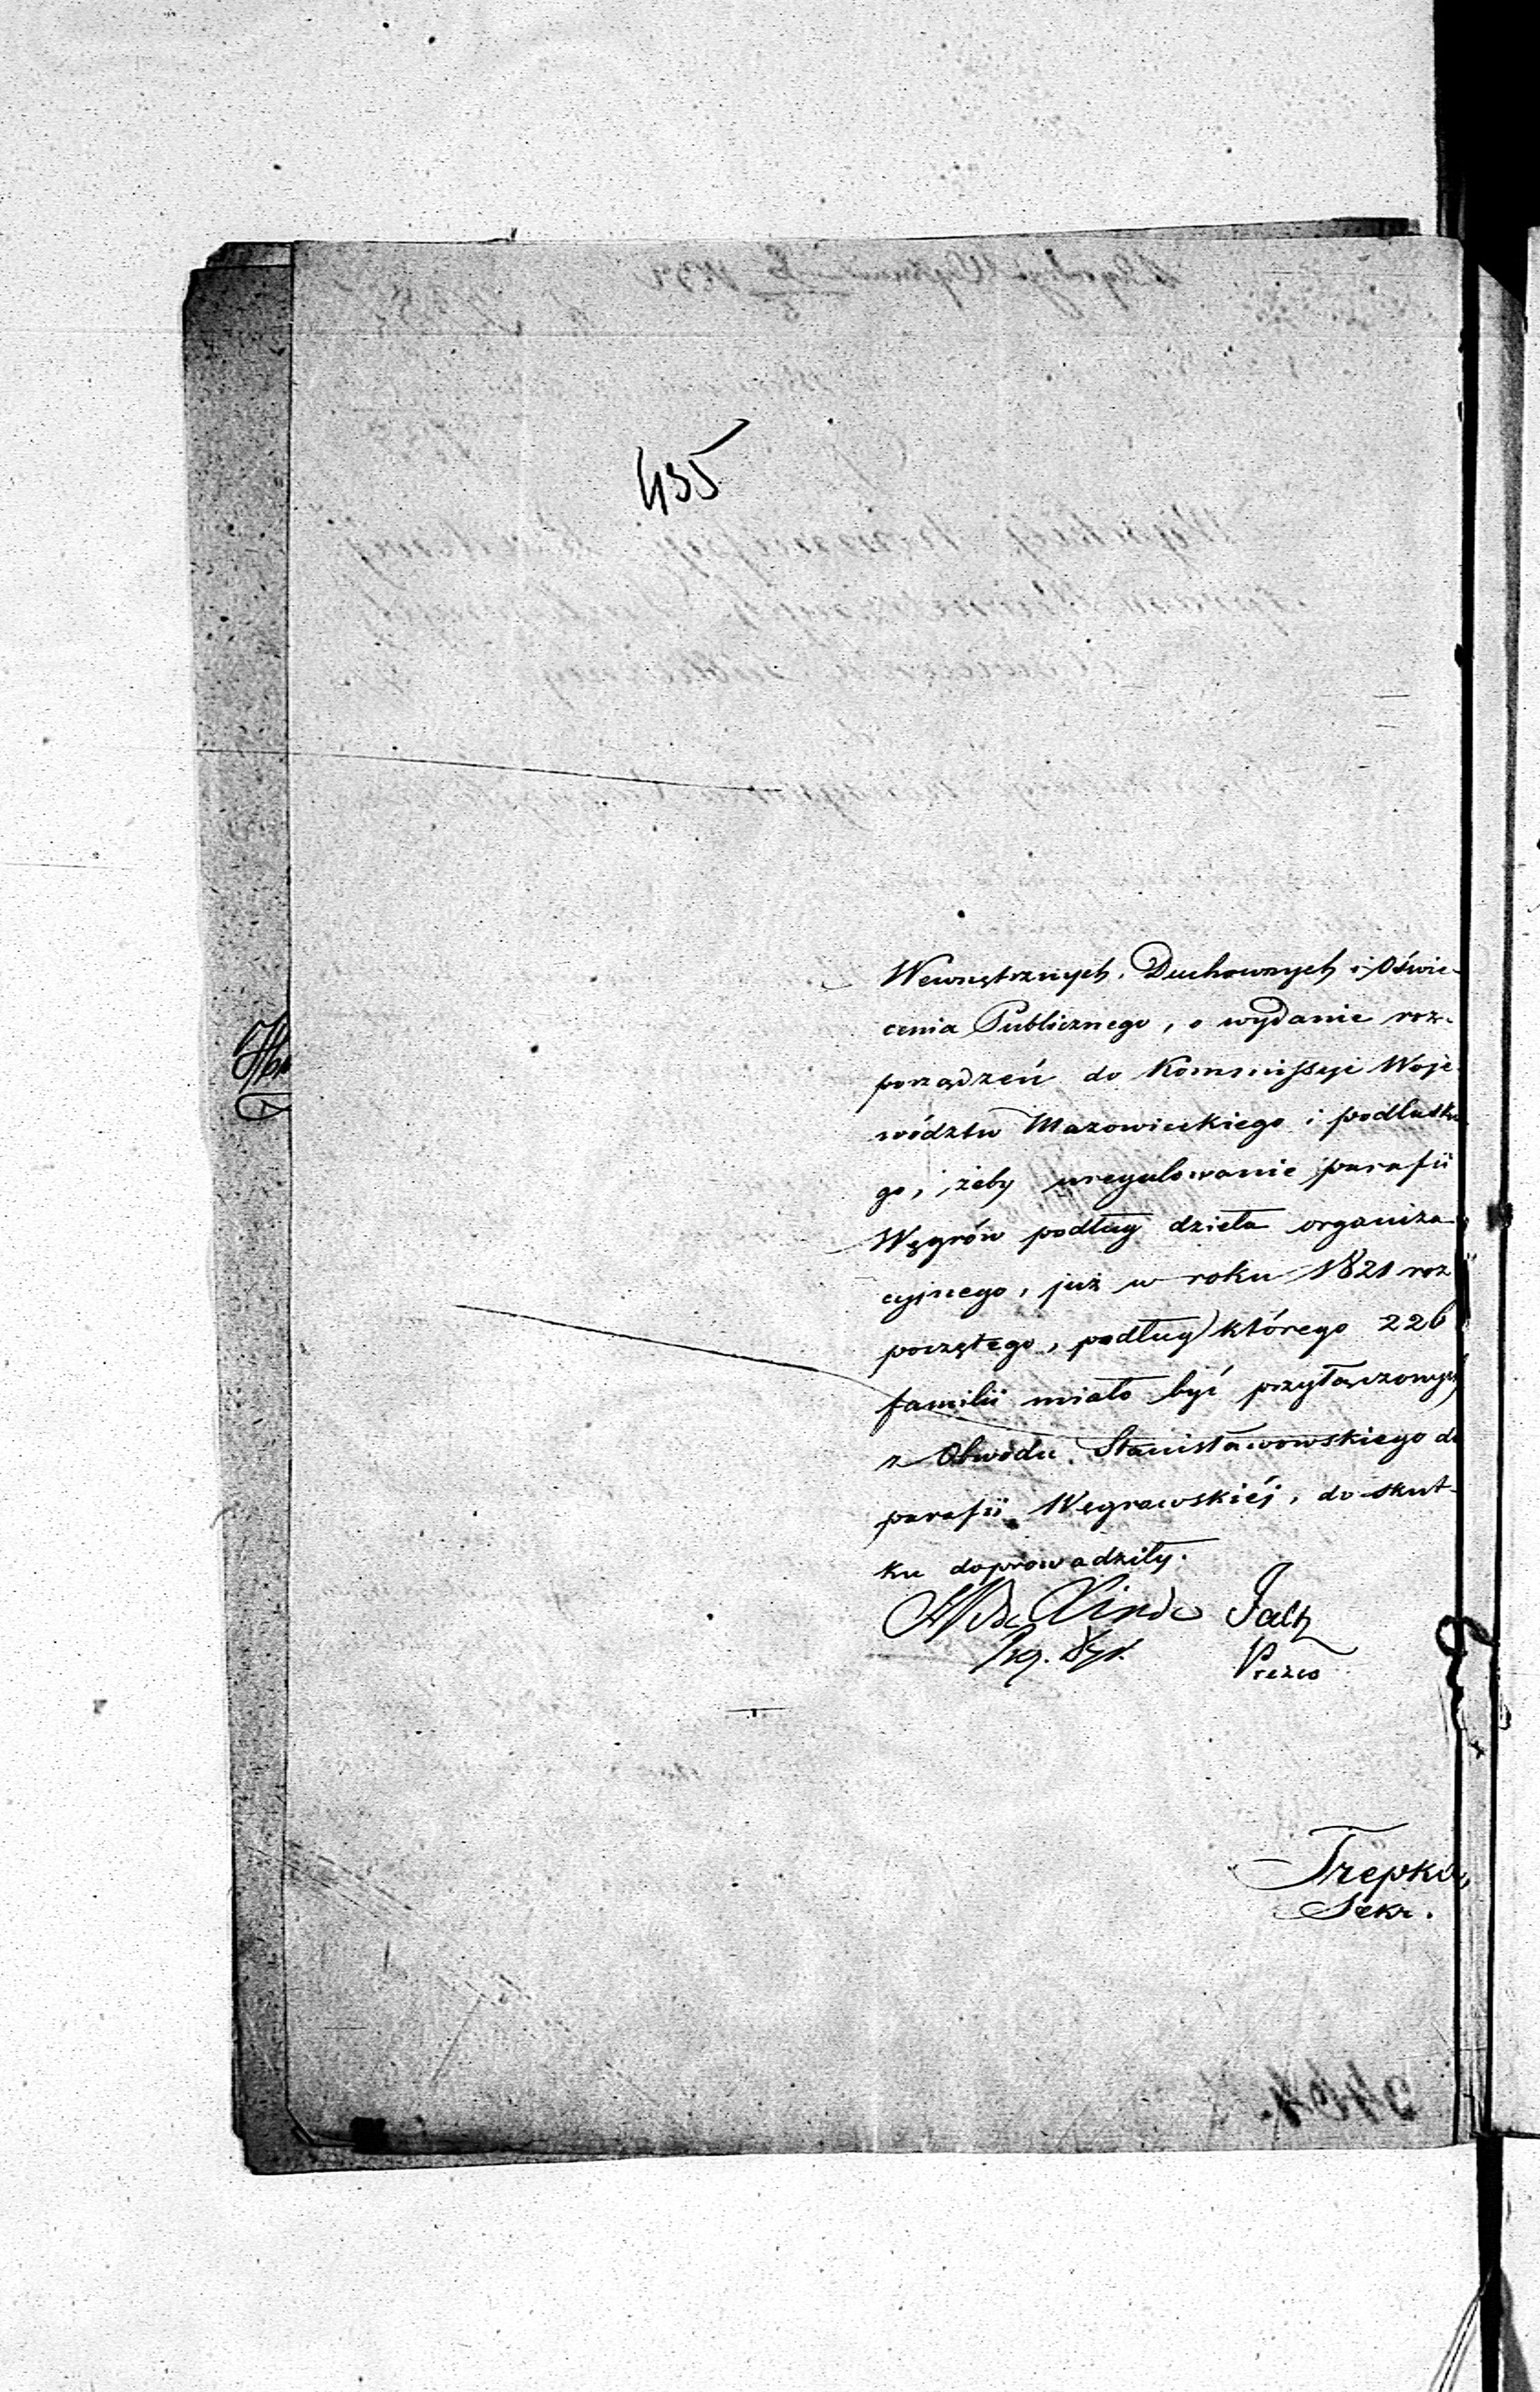 435
Wewnętrznych, Duchownych i Oświe-
cenia Publicznego, o wydanie roz-
porządzeń do Kommissyi Woje-
wództw Mazowieckiego i podlaskie
go, żeby uregulowanie parafii
Węgrów podług dzieła organiza
cyjnego, już w roku 1821 roz
poczętego, podług którego 226
familii miało być przyłączonych
z Obwodu Stanisławowskiego do
parafii Węgrowskiéj, do skut-
ku doprowadziły.
Linde
Prezes
Trepka
Sekr.